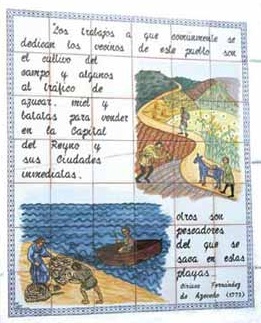 "Los trabajos a que comunmente se
dedican los vecinos de este pueblo son
el cultivo del
campo y algunos
al tráfico de
azucar, miel y
batatas para vender
en la Capital
del Reyno y
sus Ciudades
inmediatas.
otros son
pescadores
del que se
saca en estas
playas
Fernández
de Acevedo (1773)